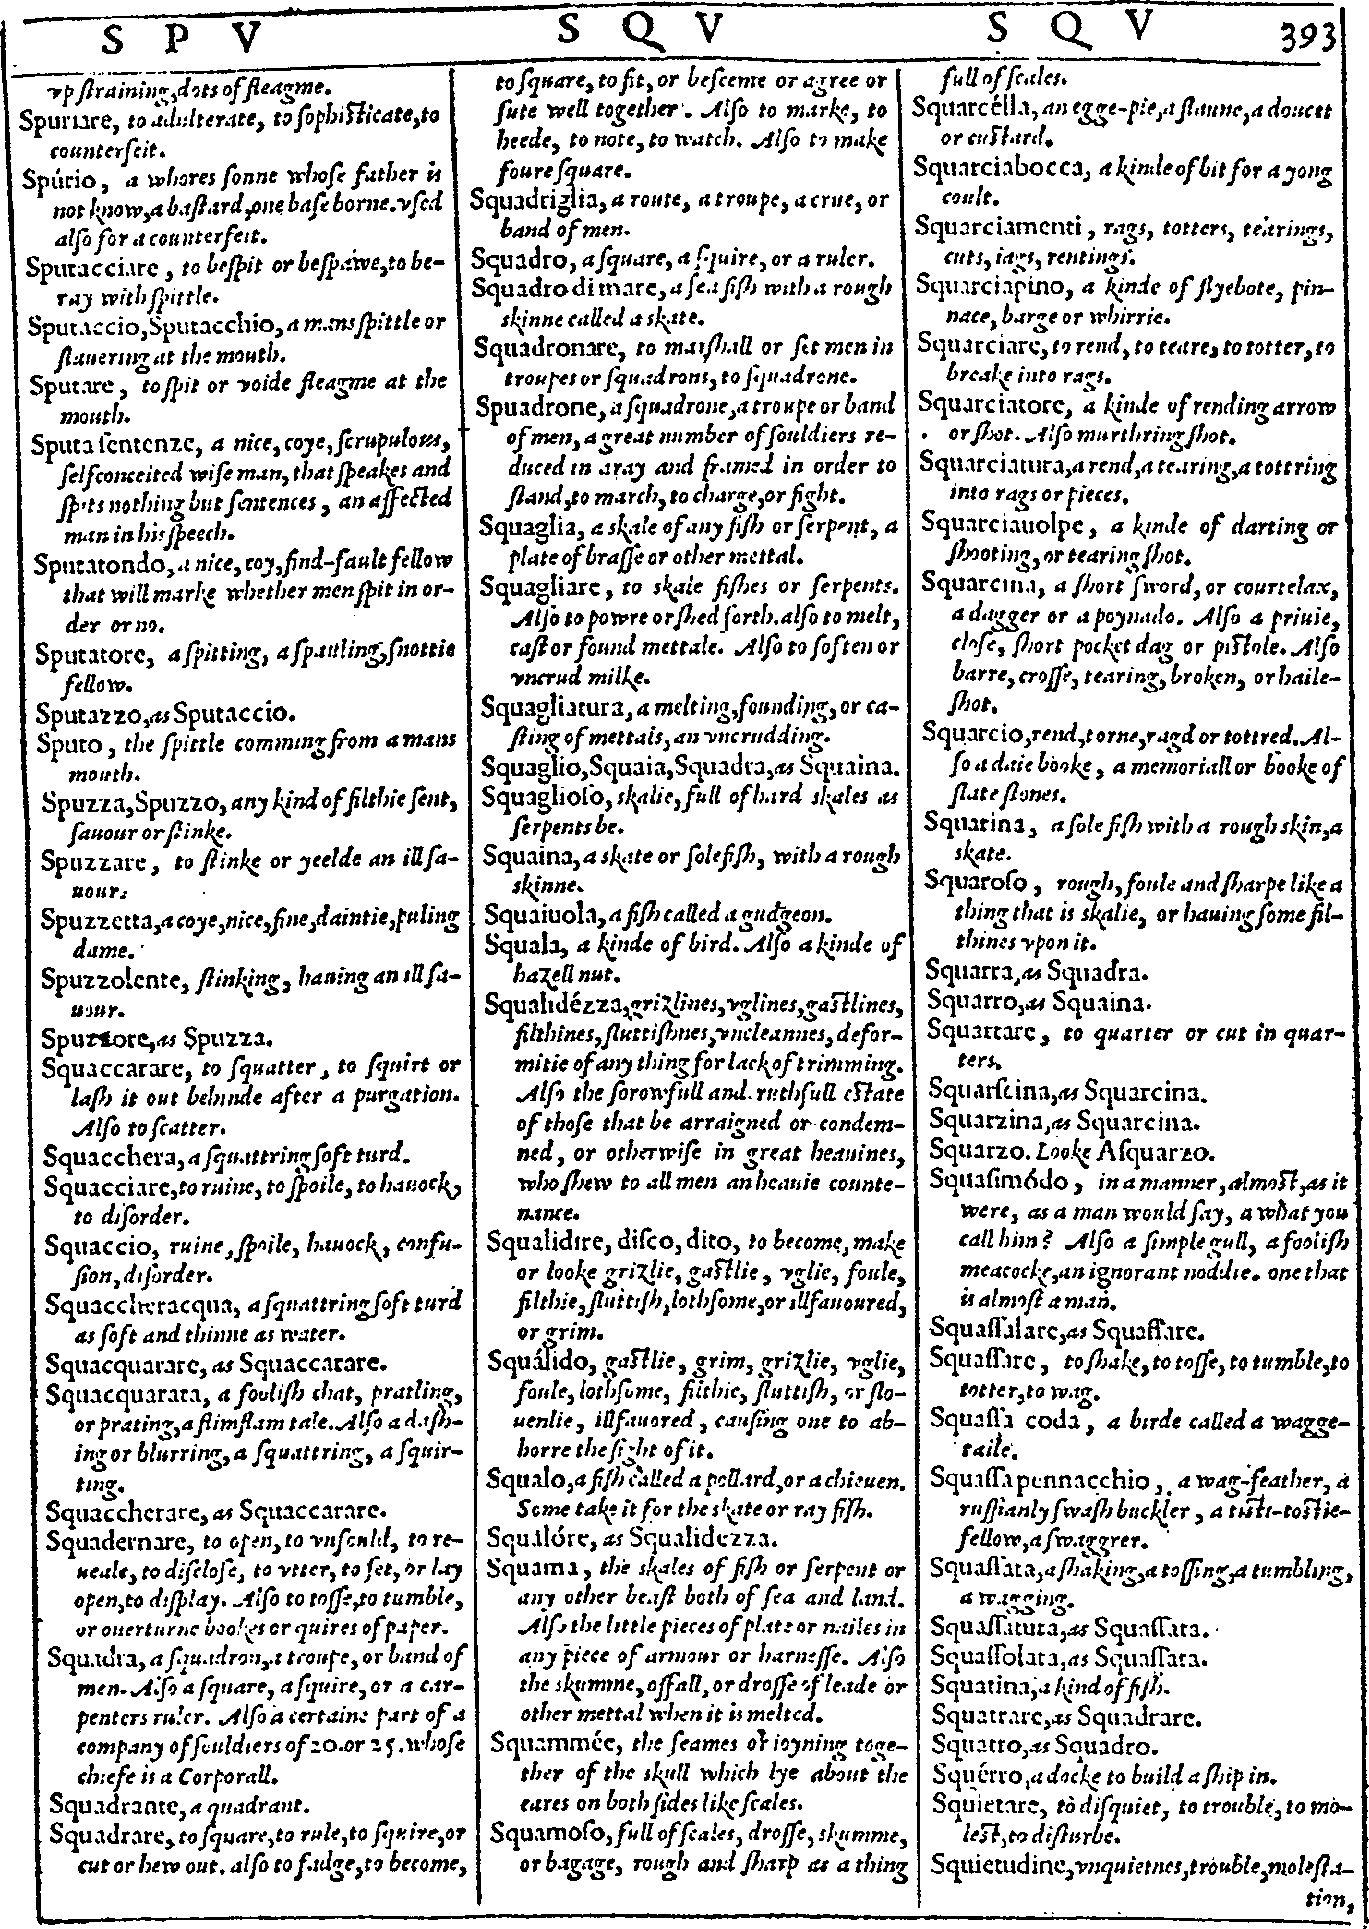 S P V
S Q V
S Q V 393
vp ſtraining, dots of fleagme.
Spuriare, to adulterate, to ſophiſticate, to
counterfeit.
Spúrio, a whores ſonne whoſe father is
not know, a baſtard, one baſe borne. vſed
alſo for a counterfeit.
Sputacciare, to beſpit or beſpawe, to be-
ray with ſpittle.
Sputaccio, Sputacchio, a mans ſpittle or
ſlauering at the mouth.
Sputare, to ſpit or voide fleagme at the
mouth.
Sputa ſentenze, a nice, coye, ſcrupulous,
ſelfconceited wiſe man, that ſpeakes and
ſpits nothing but ſentences, an affected
man in his ſpeech.
Sputatondo, a nice, coy, find-fault fellow
that will marke whether men ſpit in or-
der or no.
Sputatore, a ſpitting, a ſpauling, ſnottie
fellow.
Sputazzo, as Sputaccio.
Sputo, the ſpittle comming from a mans
mouth.
Spuzza, Spuzzo, any kind of filthie ſent,
ſauour or ſtinke.
Spuzzare, to ſtinke or yeelde an ill ſa-
uour.
Spuzzetta, a coye, nice, fine, daintie, puling
dame.
Spuzzolente, ſtinking, hauing an ill ſa-
uour.
Spuzzore, as Spuzza.
Squaccarare, to ſquatter, to ſquirt or
laſh it out behinde after a purgation.
Alſo to ſcatter.
Squacchera, a ſquattring ſoft turd.
Squacciare, to ruine, to ſpoile, to hauock,
to diſorder.
Squaccio, ruine, ſpoile, hauock, confu-
ſion, diſorder.
Squaccheracqua, a ſquattring ſoft turd
as ſoft and thinne as water.
Squacquarare, as Squaccarare.
Squacquarata, a fooliſh chat, pratling,
or prating, a flimflam tale. Alſo a daſh-
ing or blurring, a ſquattring, a ſquir-
ting.
Squaccherare, as Squaccarare.
Squadernare, to open, to vnfould, to re-
ueale, to diſcloſe, to vtter, to ſet, or lay
open, to diſplay. Alſo to toſſe, to tumble,
or ouerturne bookes or quires of paper.
Squadra, a ſquadron, a troupe, or band of
men. Alſo a ſquare, a ſquire, or a car-
penters ruler. Alſo a certaine part of a
company of ſouldiers of 20. or 25. whoſe
chiefe is a Corporall.
Squadrante, a quadrant.
Squadrare, to ſquare, to rule, to ſquire, or
cut or hew out. alſo to fadge, to become,
to ſquare, to fit, or beſceme or agree or
ſute well together. Alſo to marke, to
heede, to note, to watch. Alſo to make
foure ſquare.
Squadriglia, a route, a troupe, a crue, or
band of men.
Squadro, a ſquare, a ſquire, or a ruler.
Squadro di mare, a ſea fiſh with a rough
skinne called a skate.
Squadronare, to marſhall or ſet men in
troupes or ſquadrons, to ſquadrone.
Spuadrone, a ſquadrone, a troupe or band
of men, a great number of ſouldiers re-
duced in aray and framed in order to
ſtand, to march, to charge, or fight.
Squaglia, a skale of any fiſh or ſerpent, a
plate of braſſe or other mettal.
Squagliare, to skale fiſhes or ſerpents.
Alſo to powre or ſhed forth. alſo to melt,
caſt or found mettale. Alſo to ſoften or
vncrud milke.
Squagliatura, a melting, founding, or ca-
ſting of mettals, an vncrudding.
Squaglio, Squaia, Squadra, as Squaina.
Squaglioſo, skalie, full of hard skales as
ſerpents be.
Squaina, a skate or ſole fiſh, with a rough
skinne.
Squaiuola, a fiſh called a gudgeon.
Squala, a kinde of bird. Alſo a kinde of
hazell nut.
Squalidézza, grizlines, vglines, gaſtlines,
filthines, ſluttiſhnes, vncleannes, defor-
mitie of any thing for lack of trimming.
Alſo the ſorowfull and ruthfull eſtate
of thoſe that be arraigned or condem-
ned, or otherwiſe in great heauines,
who ſhew to all men an heauie counte-
nance.
Squalidire, diſco, dito, to become, make
or looke grizlie, gaſtlie, vglie, foule,
filthie, ſluttiſh, lothſome, or illfauoured,
or grim.
Squálido, gaſtlie, grim, grizlie, vglie,
foule, lothſome, filthie, ſluttiſh, or ſlo-
uenlie, illfauored, cauſing one to ab-
horre the ſight of it.
Squalo, a fiſh called a pollard, or a chieuen.
Some take it for the skate or ray fiſh.
Squalóre, as Squalidezza.
Squama, the skales of fiſh or ſerpent or
any other beaſt both of ſea and land.
Alſo the little pieces of plate or nailes in
any piece of armour or harneſſe. Alſo
the skumme, offall, or droſſe of leade or
other mettal when it is melted.
Squammée, the ſeames or ioyning toge-
ther of the skull which lye about the
eares on both ſides like ſcales.
Squamoſo, full of ſcales, droſſe, skumme,
or bagage, rough and ſharp as a thing
full of ſcales.
Squarcélla, an egge-pie, a flaune, a doucet
or cuſtard.
Squarciabocca, a kinde of bit for a yong
coult.
Squarciamenti, rags, totters, tearings,
cuts, iags, rentings.
Squarciapino, a kinde of flyebote, pin-
nace, barge or whirrie.
Squarciare, to rend, to teare, to totter, to
breake into rags.
Squarciatore, a kinde of rending arrow
or ſhot. Alſo murthring ſhot.
Squarciatura, a rend, a tearing, a tottring
into rags or pieces.
Squarciauolpe, a kinde of darting or
ſhooting, or tearing ſhot.
Squarcina, a ſhort ſword, or courtelax,
a dagger or a poynado. Alſo a priuie,
cloſe, ſhort pocket dag or piſtole. Alſo
barre, croſſe, tearing, broken, or haile-
ſhot.
Squarcio, rend, torne, ragd or tottred. Al-
ſo a daie booke, a memoriall or booke of
ſlate ſtones.
Squarina, a ſole fiſh with a rough skin, a
skate.
Squaroſo, rough, foule and ſharpe like a
thing that is skalie, or hauing ſome fil-
thines vpon it.
Squarra, as Squadra.
Squarro, as Squaina.
Squartare, to quarter or cut in quar-
ters.
Squarſcina, as Squarcina.
Squarzina, as Squarcina.
Squarzo. Looke Aſquarzo.
Squaſimódo, in a manner, almoſt, as it
were, as a man would ſay, a what you
call him? Alſo a ſimple gull, a fooliſh
meacocke, an ignorant noddie. one that
is almoſt a man.
Squaſſalare, as Squaſſare.
Squaſſare, to ſhake, to toſſe, to tumble, to
totter, to wag.
Squaſſa coda, a birde called a wagge-
taile.
Squaſſapennacchio, a wag-feather, a
ruffianly ſwaſh buckler, a tiſti-toſtie-
fellow, a ſwaggrer.
Squaſſata, a ſhaking, a toſſing, a tumbling,
a wagging.
Squaſſatura, as Squaſſata.
Squaſſolata, as Squaſſata.
Squatina, a kind of fiſh.
Squatrare, as Squadrare.
Squatro, as Squadro.
Squérro, a docke to build a ſhip in.
Squietare, to diſquiet, to trouble, to mo-
leſt, to diſturbe.
Squietudine, vnquietnes, trouble, moleſta-
tion,